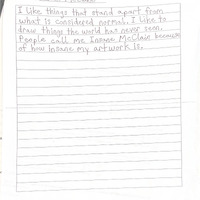 I like things that stand apart from
what is considered normal. I like to
draw things the world has never seen.
People call me Insane McClain because
of how insane my artwork is.